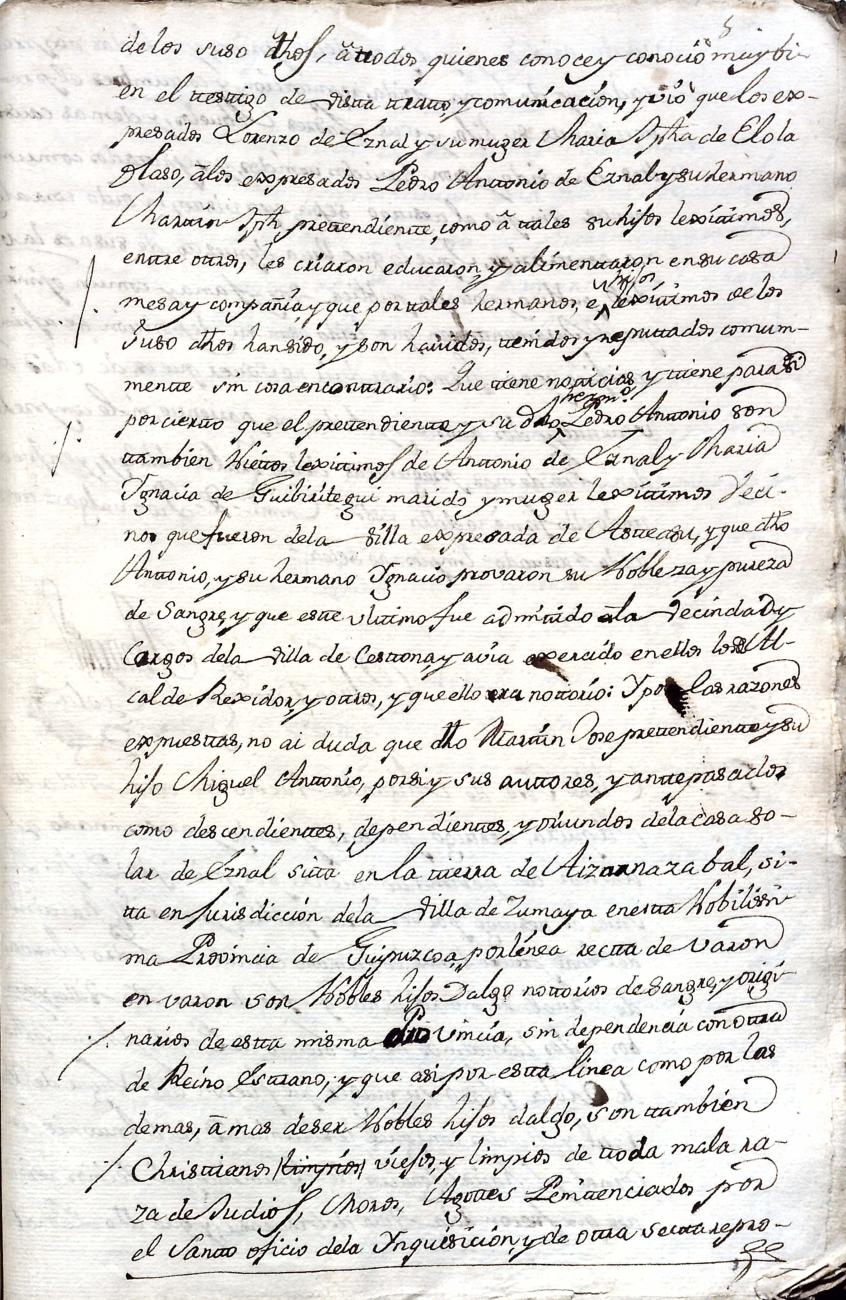 5
de los suso dhos, â ttodos quienes conoce y conociò muy bi-
en el ttesttigo de vistta ttratto, y comunicación, y viò que los ex-
presados Lorenzo de Eznal y su muger Maria Jpha de Elola
Olaso, â los expresados Pedro Antonio de Eznal y su hermano
Martin Jph, prettendientte, como â ttales sus hijos lexitimos,
enttre ottros, les criaron educaron, y alimenttaron en su casa
mesa y compañia, y que por ttales hermanos, e hijos lexitimos de los
suso dhos han sido, y son havidos, ttenidos y reputtados comun-
mentte sin cosa en conttrario: Que ttiene notticias, y ttiene para si
por ciertto que el prettendientte y su dho hermno. Pedro Anttonio son
ttambien Niettos lexittimos de Anttonio de Eznal y Maria
Ygnacia de Guibiritegui marido, y muger lexitimos Veci-
nos que fueron de la Villa expresada de Asteasu, y que dho
Antonio, y su hermano Ygnacio provaron su Nobleza y pureza
de Sangre, y que estte ultimo fue admitido â la Vecindad, y
Cargos de la Villa de Cestona y avia exercido en ellos los de Al-
calde Rexidor, y ottros, y que ello era nottorio: Y por las razones
expuesttas, no ai duda que dho Martin Jose prettendientte y su
hijo Miguel Antonio, por si y sus auttores, y antte pasados
como descendienttes, dependienttes, y oriundos de la casa so-
lar de Eznal sitta en la ttierra de Aizarnazabal, si-
tta en Jurisdicción de la Villa de Zumaya en estta Nobilisi-
ma Provincia de Guipuzcoa, por linea rectta de varon
en varon son Nobles hijos Dalgo nottorios de sangre, y origi-
narios de estta misma Provincia, sin dependencia con ottra
de Reino Esttrano; y que asi por estta linea como por las
demas, â mas de ser Nobles hijos dalgo, son ttambien
Christtianos (limpios) viejos, y limpios de ttoda mala ra-
za de Judios, Moros, Agottes Penitenciados por
el Santto oficio de la Ynquisición, y de ottra sectta repro-